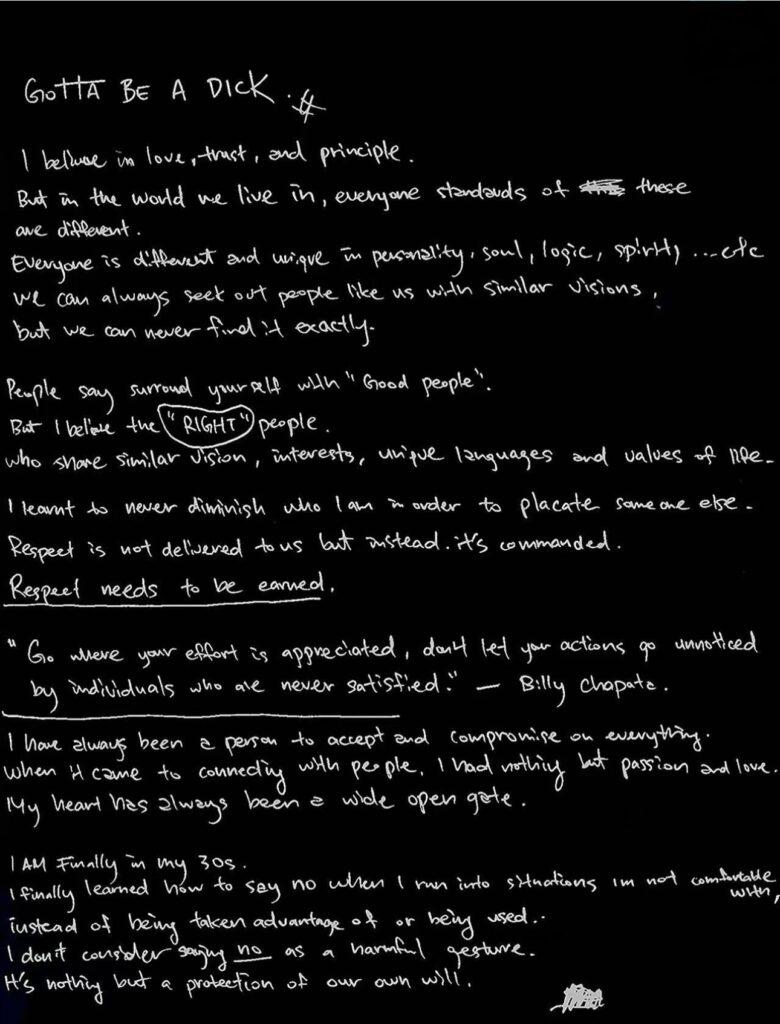 GOTTA BE A DICK. #
I believe in love, trust, and principle.
But in the world we live in, everyone standards of these
are different.
Everyone is different and unique in personality, soul, logic, spirit, ...etc
we can always seek out people like us with similar visions,
but we can never find it exactly.
People say surround yourself with "Good people".
But I believe the "RIGHT" people.
who share similar vision, interests, unique languages and values of life.
I learnt to never diminish who I am in order to placate someone else.
Respect is not delivered to us but instead. it's commanded.
Respect needs to be earned.
"Go where your effort is appreciated, don't let your actions go unnoticed
by individuals who are never satisfied." — Billy Chapata.
I have always been a person to accept and compromise on everything.
when it came to connecting with people, I had nothing but passion and love.
My heart has always been a wide open gate.
I AM Finally in my 30s.
I finally learned how to say no when I run into situations im not comfortable
with,
instead of being taken advantage of or being used..
I don't consider saying no as a harmful gesture.
It's nothing but a protection of our own will.